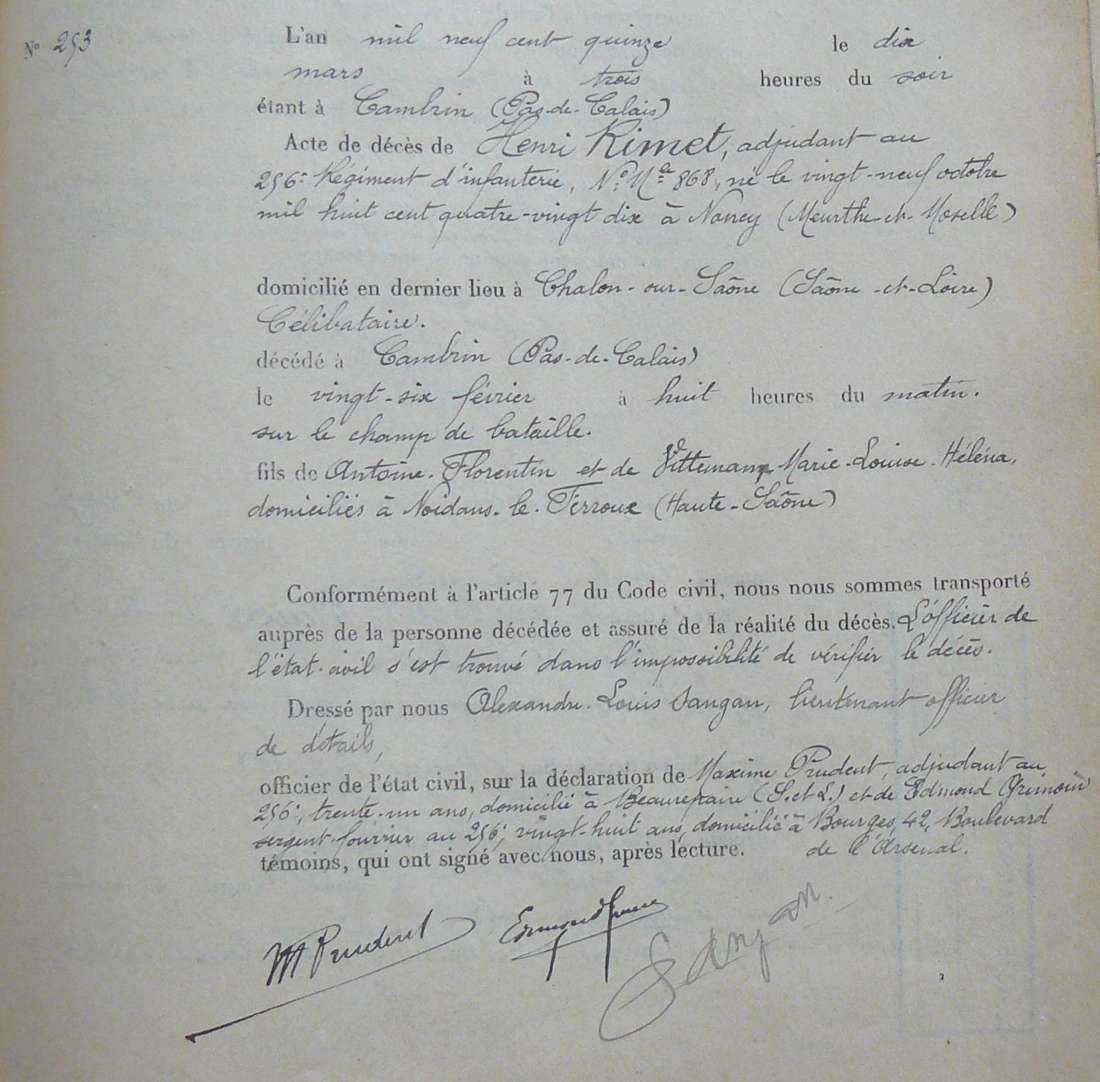 N° 253
L'an mil neuf cent quinze le dix
mars à trois heures du soir
étant à Cambrin (Pas-de-Calais)
Acte de décès de Henri Rimet, adjudant au
256e Régiment d'infanterie, N° Mle 868, né le vingt-neuf octobre
mil huit cent quatre-vingt dix à Nancy (Meurthe-et-Moselle)
domicilié en dernier lieu à Chalon-sur-Saône (Saône-et-Loire)
Célibataire.
décédé à Cambrin (Pas-de-Calais)
le vingt-six février à huit heures du matin.
sur le champ de bataille.
fils de Antoine-Florentin et de Marie-Louise-Héléna,
domiciliés à Noidans-le-Ferroux (Haute-Saône)
Conformément à l'article 77 du Code civil, nous nous sommes transporté
auprès de la personne décédée et assuré de la réalité du décès. L'officier de
l'état-civil s'est trouvé dans l'impossibilité de vérifier le décès.
Dressé par nous Alexandre-Louis Sangan, lieutenant officier
de détails,
officier de l'état civil, sur la déclaration de Maxime Prudent, adjudant au
256e, trente-un ans, domicilié à Beaurepaire (S.et L.) et de Edmond
sergent-fourrier au 256e, vingt-huit ans, domicilié à Bourges, 42, Boulevard
de l'Arsenal.
témoins, qui ont signé avec nous, après lecture.
M Prudent Edmond Sangan